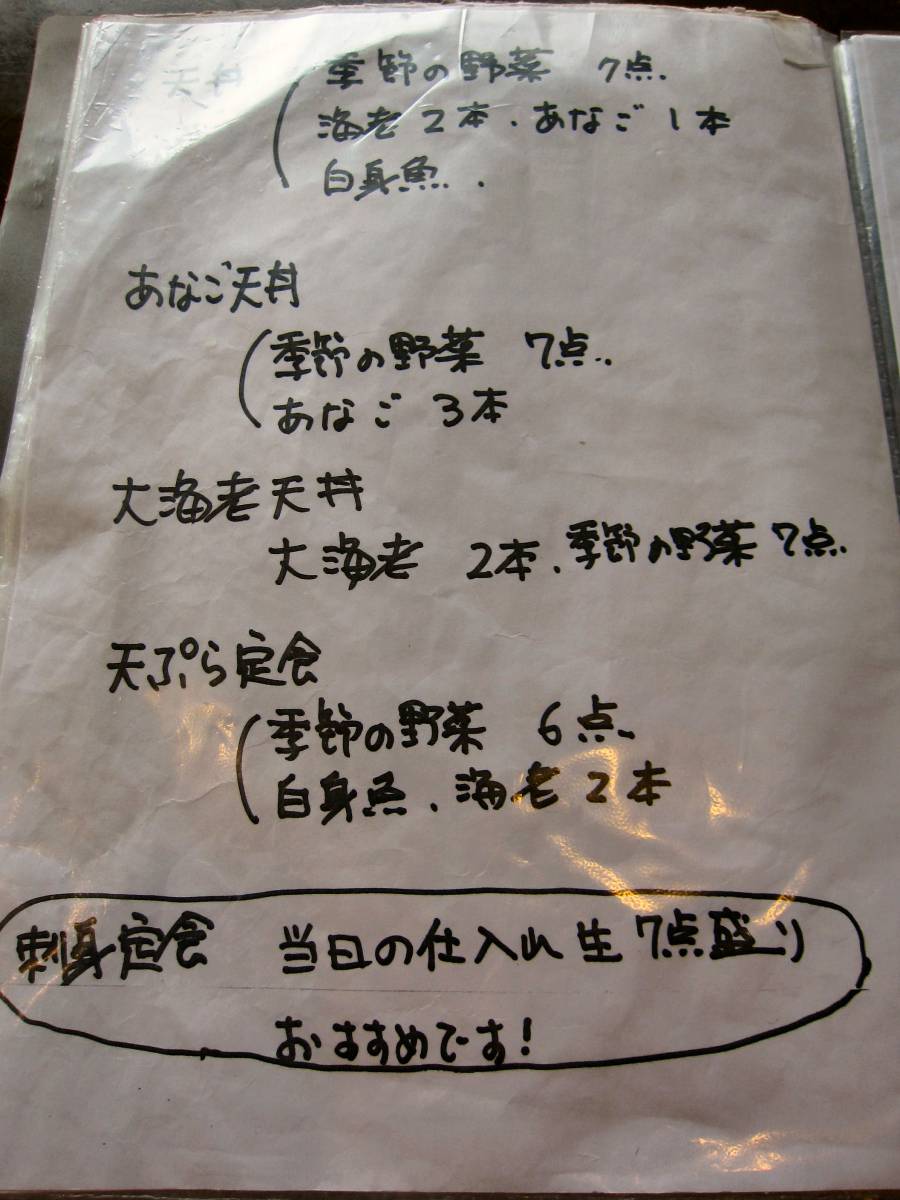 天丼 季節の野菜 7点.
海老 2本.あなご 1本
白身魚.
あなご天丼
季節の野菜 7点..
あなご 3本
大海老天丼
大海老 2本.季節の野菜 7点.
天ぷら定食
季節の野菜 6点.
白身魚.海老 2本
刺身定食 当日の仕入れ 生 7点盛り
おすすめです!